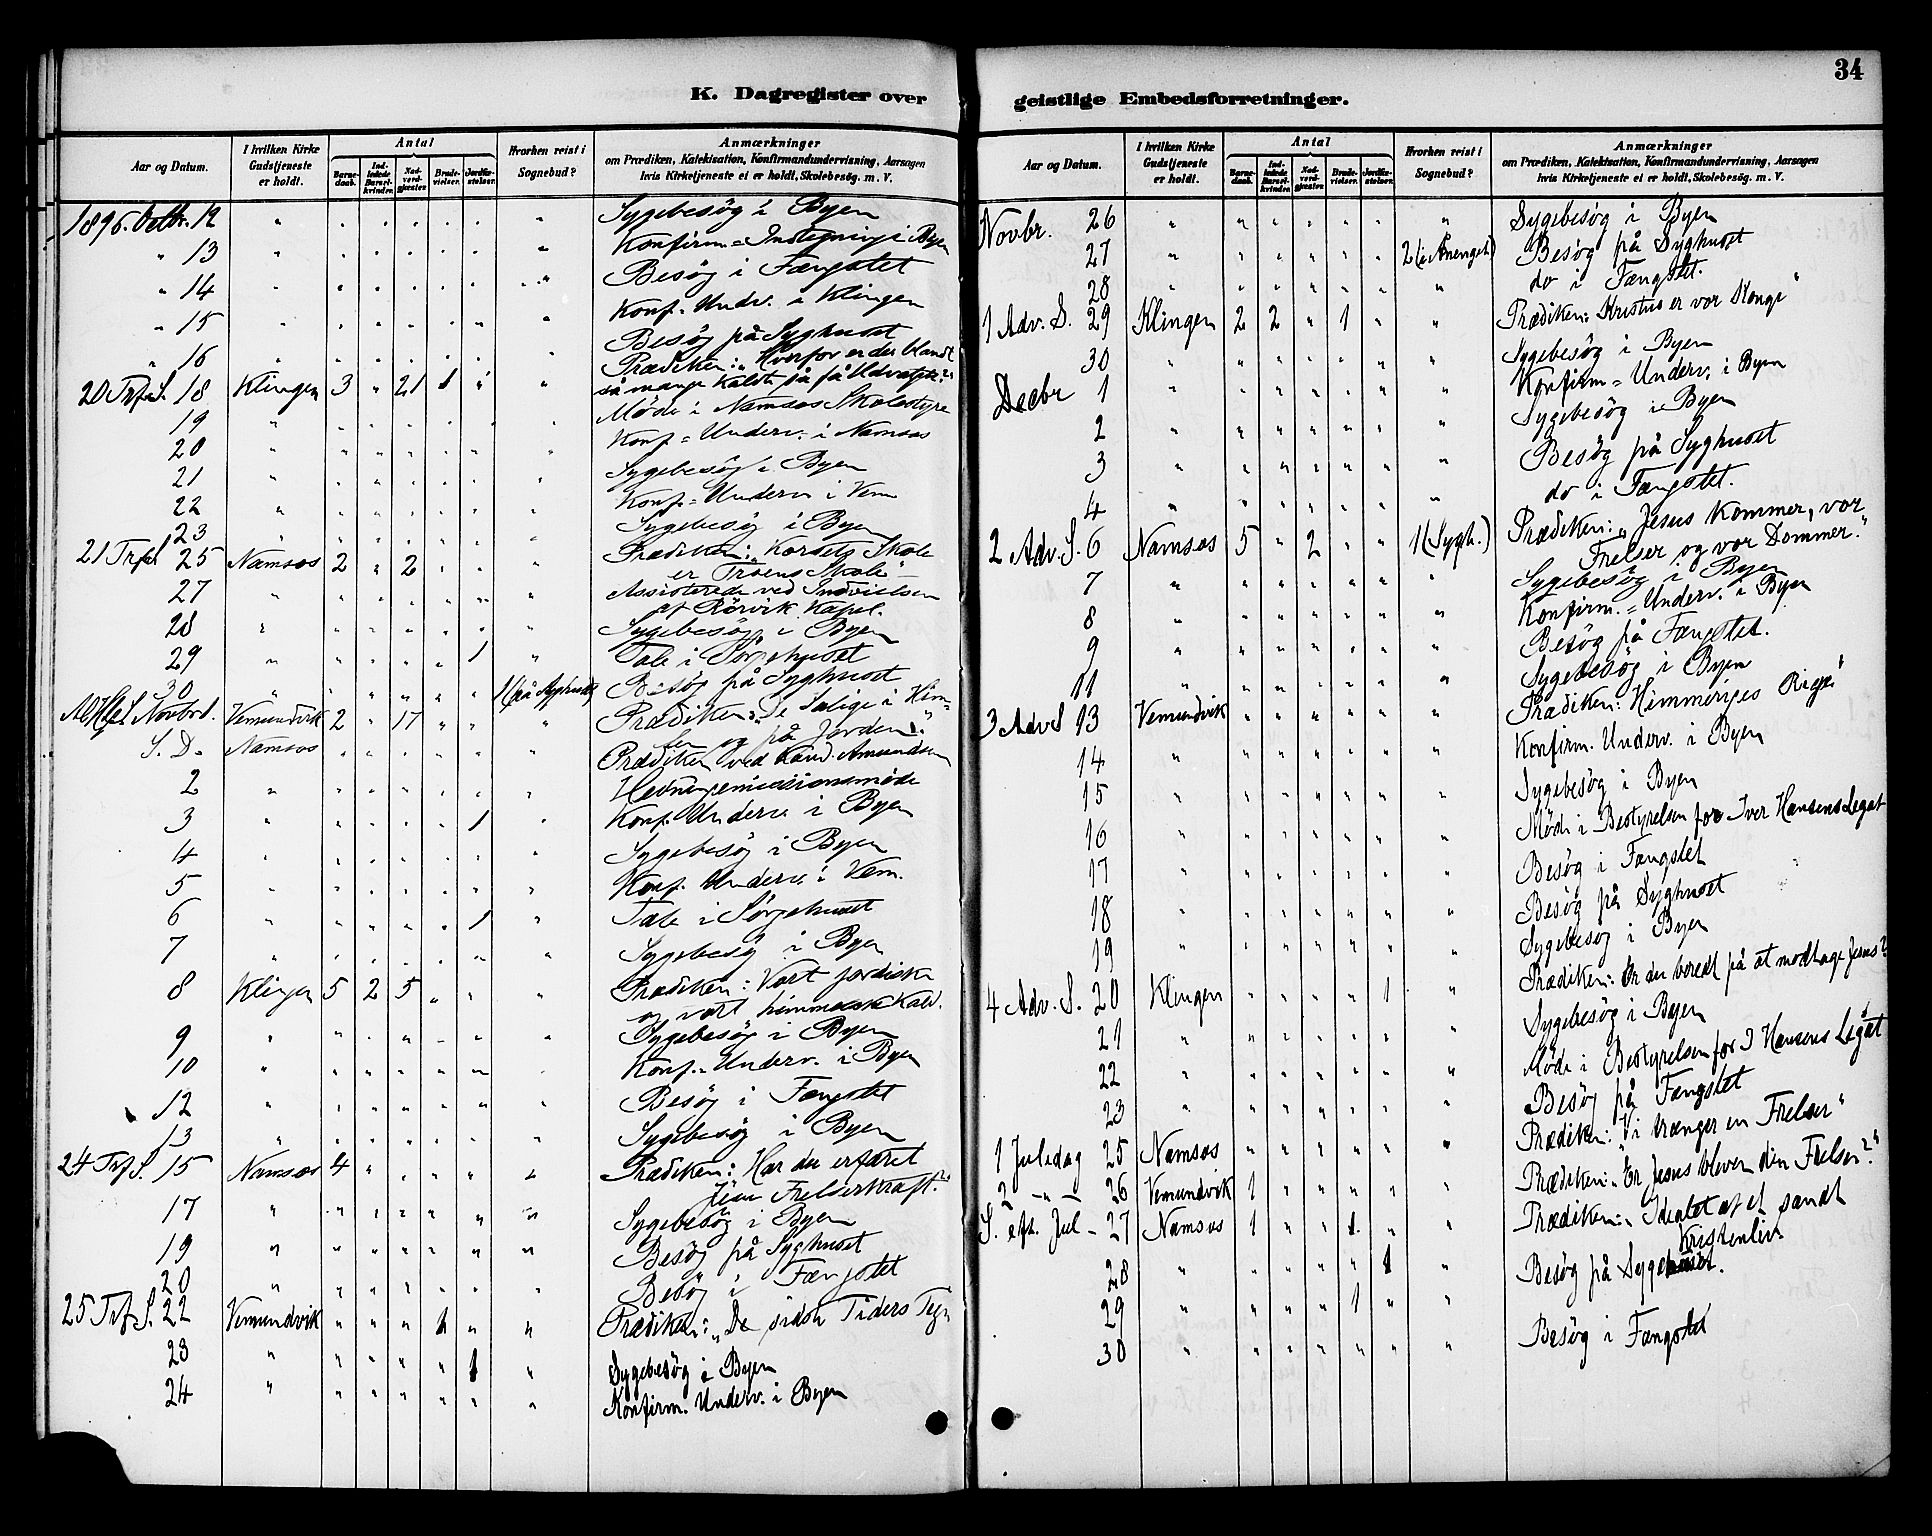 34
K. Dagregister over
Aar og Datum. I hvilken Kirke Gudstjeneste er holdt. Antal Barnedaab. Indledede Barselkvinder. Nadverdgjester. Brudevielser. Jordfæstelser. Hvorhen reist i Sognebud? Anmærkninger om Prædiken, Katekisation, Konfirmandundervisning, Aarsagen hvis Kirketjeneste ei er holdt, Skolebesøg. m. V.
1896. Octbr. 12 " " " " " " " Sygebesøg i Byen
" 13 " " " " " " " Konfirm = Indtegning i Byen
" 14 " " " " " " " Besøg i Fængslet
" 15 " " " " " " " Konf. Underv. i Klingen
" 16 " " " " " " " Besøg på Syghuset
20 Trf. S. 18 Klingen 3 " 21 1 " " Prædiken: "Hvorfor er der blandt
så mange Kaldte så få Udvalgte?"
19 " " " " " " " Møde i Namsos Skolestyre
20 " " " " " " " Konf = Underv. i Namsos
21 " " " " " " " Sygebesøg i Byen
22 " " " " " " " Konf. = Underv i Vem
23 " " " " " " " Sygebesøg i Byen
21 Trf. 25 Namsos 2 " 2 " " " Prædiken: Korsets Skole
er Troens Skole
27 " " " " " " " Assisterede ved Indvielsen
af Rörvik Kapel.
28 " " " " " " " Sygebesøg i Byen
29 " " " " " 1 " Tale i Sørgehuset
30 " " " " " " 1 (på Syghuset) Besøg på Syghuset
Novbr 1. Vemundvik 2 " 17 " " " Prædiken: "De Salige i Him-
len og på Jorden".
S. D. Namsos " " " " " " Prædiken ved Kand. Amundsen
2 " " " " " " " Hedningemissionsmøde
3 " " " " " 1 " Konf. Underv i Byen
4 " " " " " " " Sygebesøg i Byen
5 " " " " " " " Konf. Underv i Vem.
6 " " " " " 1 " Tale i Sørgehuset
7 " " " " " " " Sygebesøg i Byen
8 Klingen 5 2 5 " " " Prædiken: Vort jordiske
og vort himmelske Kald.
9 " " " " " " " Sygebesøg i Byen
10 " " " " " " " Konf. Underv. i Byen
12 " " " " " " " Besøg i Fængslet
13 " " " " " " " Sygebesøg i Byen
24 Trf S. 15 Namsos 4 " " " " " Prædiken: Har du erfaret
Jesu Frelserkraft?"
17 " " " " " " " Sygebesøg i Byen
19 " " " " " " " Besøg på Syghuset
20 " " " " " " " Besøg i Fængslet
25 Trf S. 22 Vemundvik " " " 1 " " Prædiken: "De sidste Tiders Tegn
23 " " " " " 1 " Sygebesøg i Byen
24 " " " " " " " Konfirm. Underv. i Byen
geistlige Embedsforretninger.
Aar og Datum. I hvilken Kirke Gudstjeneste er holdt. Antal Barnedaab. Indledede Barselkvinder. Nadverdgjester. Brudevielser. Jordfæstelser. Hvorhen reist i Sognebud? Anmærkninger om Prædiken, Katekisation, Konfirmandundervisning, Aarsagen hvis Kirketjeneste ei er holdt, Skolebesøg. m. V.
Novbr. 26 " " " " " " " Sygebesøg i Byen
27 " " " " " " 2 Besøg på Syghuset
28 " " " " " " " do i Fængslet.
1 Adv. S. 29 Klingen 2 2 " 1 " " Prædiken: Kristus er vor Konge"
30 " " " " " " " Sygebesøg i Byen
Decbr 1 " " " " " " " Konfirm = Underv. i Byen
2 " " " " " " " Sygebesøg i Byen
3 " " " " " " " Besøg på Syghuset
4 " " " " " " " do i Fængslet.
2 Adv. S. 6 Namsos 5 " 2 " " 1 (Sygh.) Prædiken: "Jesus kommer, vor
Frelser og vor Dommer."
7 " " " " " " " Sygebesøg i Byen
8 " " " " " " " Konfirm. = Underv. i Byen
9 " " " " " " " Besøg på Fængslet.
11 " " " " " " " Sygebesøg i Byen
3 Adv S 13 Vemundvik " " " " " " Prædiken: Himmeriges Rige"
14 " " " " " " " Konfirm. Underv. i Byen
15 " " " " " " " Sygebesøg i Byen
16 " " " " " " " Møde i Bestyrelsen for Iver Hansens Legat
17 " " " " " " " Besøg i Fængslet
18 " " " " " " " Besøg på Syghuset
19 " " " " " " " Sygebesøg i Byen
4 Adv. S. 20 Klingen " " " " 1 " Prædiken: Er du beredt på at modtage Jesus?
21 " " " " " " " Sygebesøg i Byen
22 " " " " " " " Møde i Bestyrelsen for I Hansens Legat
23 " " " " " " " Besøg på Fængslet
1 Juledag 25 Namsos " " " " " " Prædiken: "Vi trænger en Frelser"
2 - " - 26 Vemundvik 1 " " " " " Prædiken: "Er Jesus bleven din Frelser?"
S. eft. Jul - 27 Namsos 1 " " 1 " " Prædiken: "Idealet af et sandt
Kristenliv
28 " " " " " 1 " Besøg på Sygehuset.
29 " " " " 1 " "
30 " " " " " " " Besøg i Fængslet